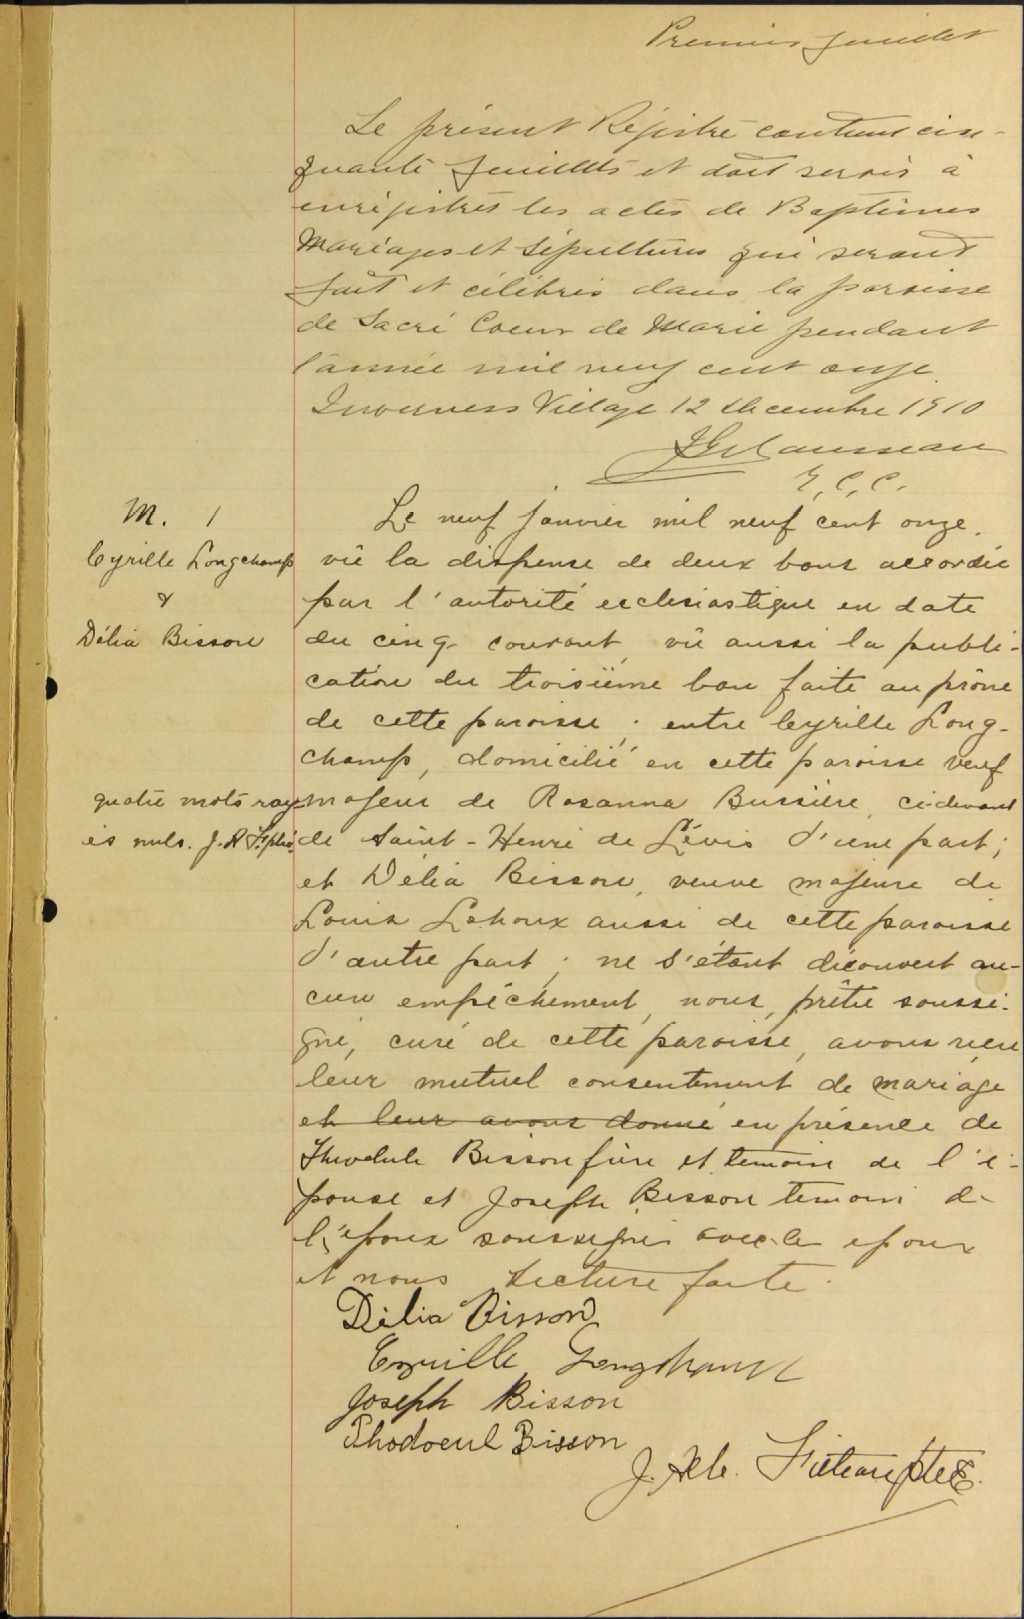 Premier feuillet
Le présent Régistre contient cin-
quante feuillets et doit servir à
enrégistrer les actes de Baptêmes
Mariages et Sépultures qui seront
fait et célébrés dans la paroisse
de Sacré Coeur de Marie pendant
l'année mil neuf cent onze.
Inverness Village 12 décembre 1910
M. 1
Cyrille Longchamp
&
Délia Bisson
Le neuf janvier mil neuf cent onze,
vû la dispense de deux bans accordée
par l'autorité ecclésiastique en date
du cinq courant, vû aussi la publi-
cation du troisième ban faite au prône
de cette paroisse; entre Cyrille Long-
champ, domicilié en cette paroisse veuf
quatre mots ray
és nuls.
majeur de Rosanna Bussière, ci-devant
de Saint-Henri de Lévis d'une part;
et Délia Bisson, veuve majeure de
Louis Lehoux aussi de cette paroisse
d'autre part; ne s'étant découvert au-
cun empêchement, nous, prêtre soussi-
gné, curé de cette paroisse, avons reçu
leur mutuel consentement de mariage
et leur avons donné en présence de
Théodule Bisson père et temoin de l'é-
pouse et Joseph Bisson temoin de
l'époux soussignés avec les époux
et nous Lecture faite.
Délia Bisson
Cyrille Longchamp
Joseph Bisson
Thodoeul Bisson